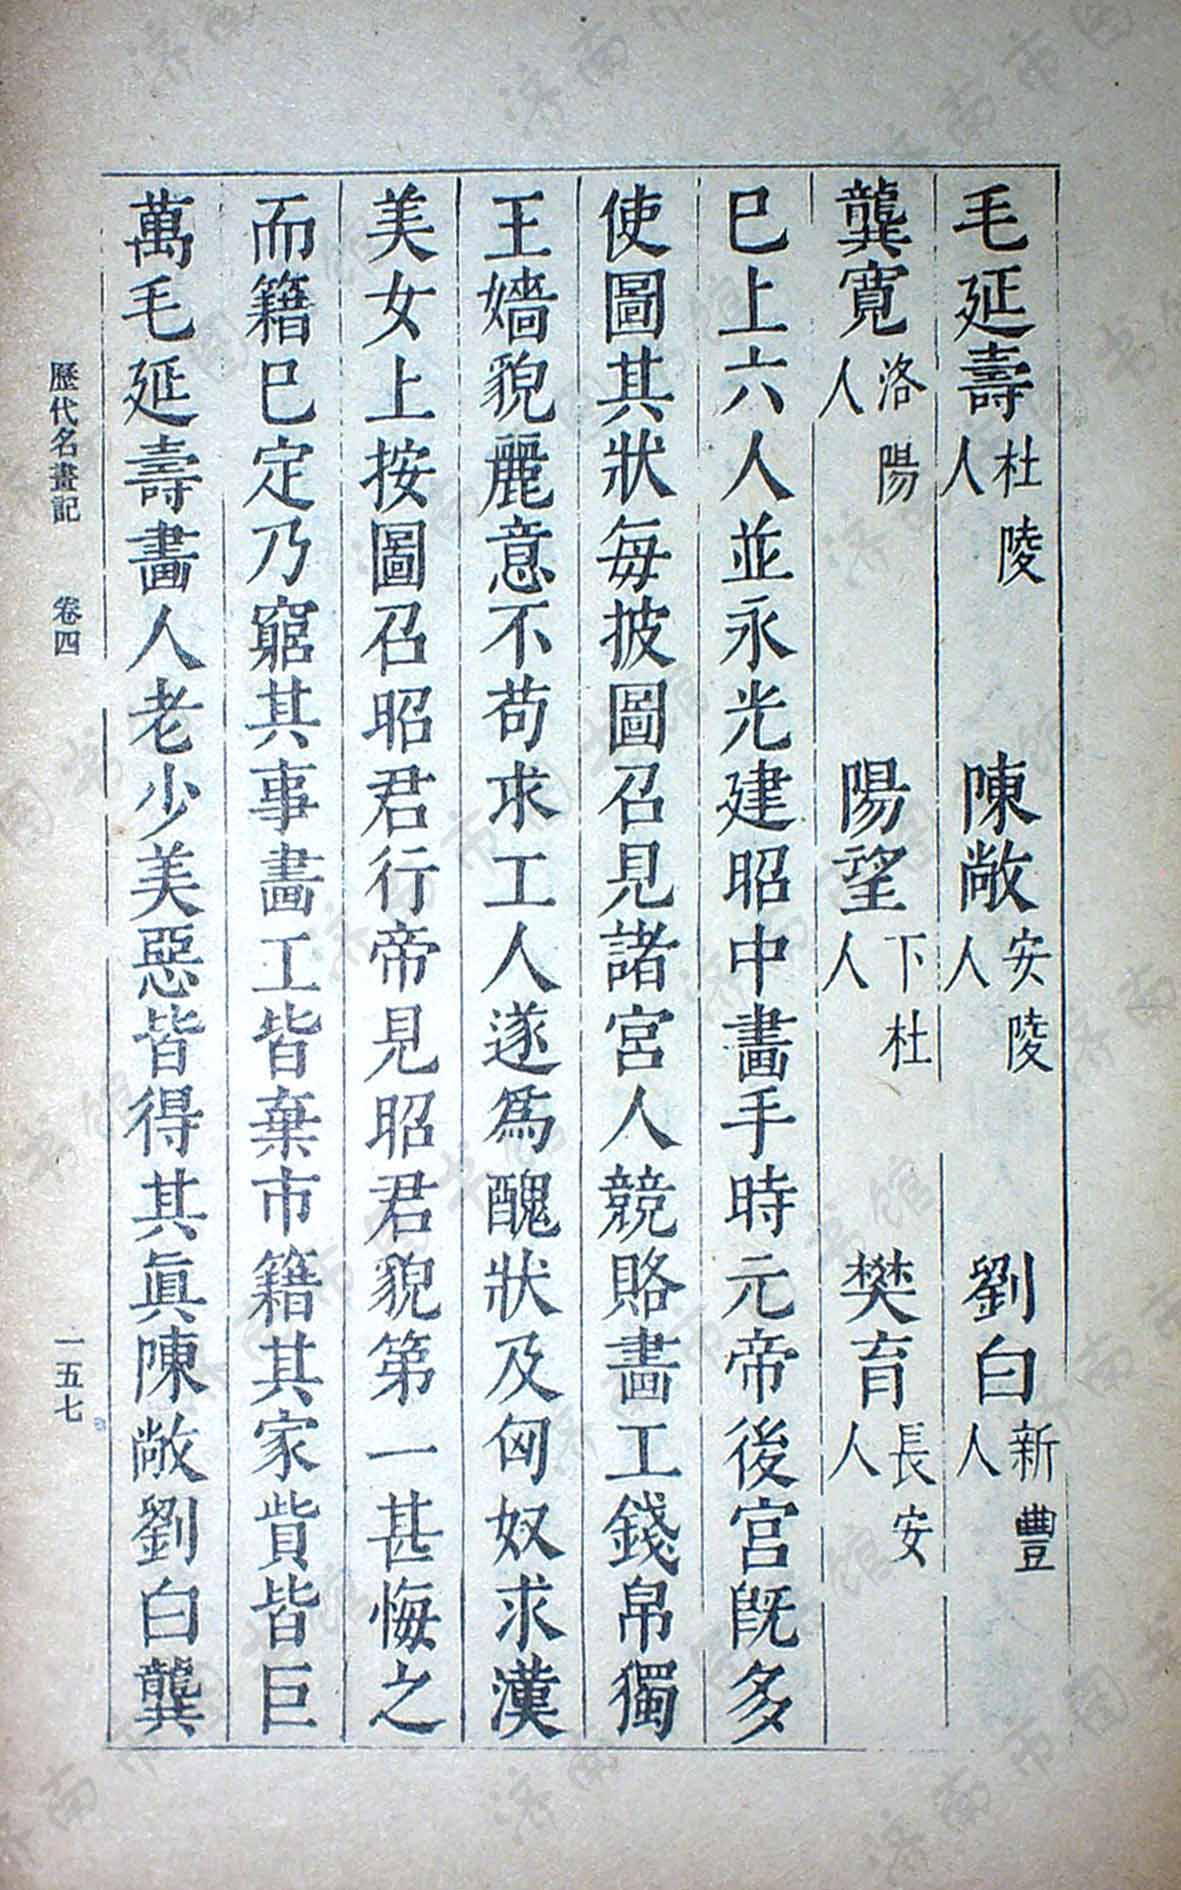 毛延壽杜陵人　陳敞安陵人　劉白新豐人
龔寬洛陽人　陽望下杜人　樊育長安人
巳上六人並永光建昭中畫手時元帝後宮旣多
使圖其狀每披圖召見諸宮人競賂畫工錢帛獨
王嬙貌麗意不苟求工人遂爲醜狀及匈奴求漢
美女上按圖召昭君行帝見昭君貌第一甚悔之
而籍巳定乃窮其事畫工皆棄市籍其家貲皆巨
萬毛延壽畫人老少美惡皆得其眞陳敞劉白龔
歷代名畫記　卷四　一五七
济南市图书馆